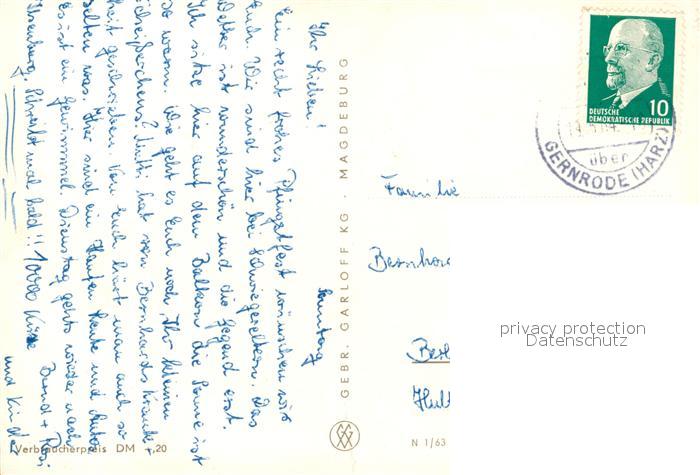 Sonntag
Ihr Lieben!
Ein recht frohes Pfingstfest wünschen wir
Euch. Wir sind hier bei Schwiegereltern. Das
Wetter ist wunderschön und die Gegend erst.
Ich sitze hier auf dem Balkon die Sonne ist
so warm. Wie geht es Euch noch, Ihr kleinen
Mutti hat von Bernhards
geschrieben. Von Euch hört man auch so
selten was. Hier sind ein Haufen Leute und Autos
es ist ein Gewimmel. Dienstag geht's wieder nach
Schreibt mal bald!! 1000 Küsse
Bernd + Rosi
und Kinder
GEBR. GARLOFF KG · MAGDEBURG
Verbraucherpreis DM -,20
DEUTSCHE
DEMOKRATISCHE REPUBLIK
10
über
GERNRODE (HARZ)
Familie
privacy protection
Datenschutz
N 1/63